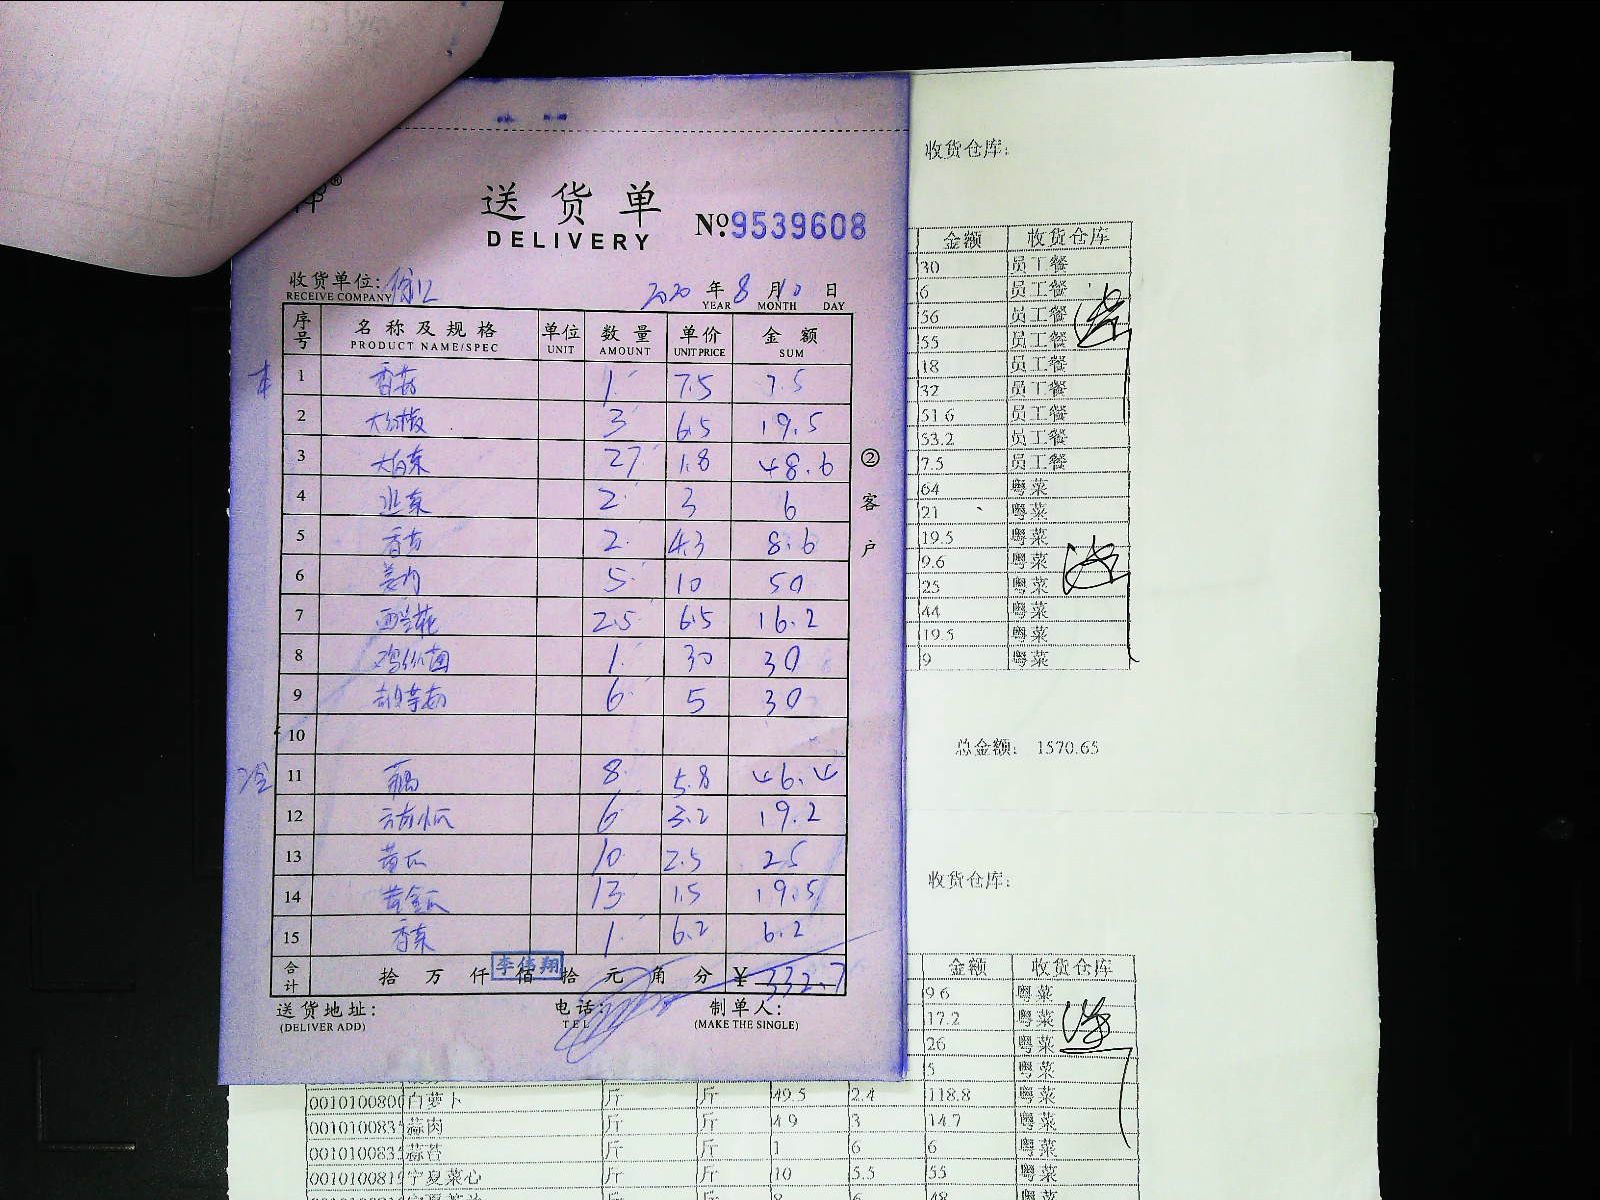 送货单
DELIVERY
No.9539608
收货单位:
RECEIVE COMPANY
2020 年 8 月 10 日
YEAR MONTH DAY
序号 名称及规格 单位 数量 单价 金额
PRODUCT NAME/SPEC UNIT AMOUNT UNIT PRICE SUM
1 香菇 1 7.5 7.5
2 3 6.5 19.5
3 大白菜 27 1.8 48.6
4 2 3 6
5 香芹 2 4.3 8.6
6 姜肉 5 10 50
7 西兰花 2.5 6.5 16.2
8 1 30 30
9 6 5 30
10
11 藕 8 5.8 46.4
12 6 3.2 19.2
13 黄瓜 10 2.5 25
14 黄金瓜 13 1.5 19.5
15 香菜 1 6.2 6.2
合计 拾 万 仟 佰 拾 元 角 分 ¥ 332.7
李伟翔
送货地址: 电话: 制单人:
(DELIVER ADD) TEL (MAKE THE SINGLE)
②客户
收货仓库:
金额 收货仓库
30 员工餐
6 员工餐
56 员工餐
55 员工餐
18 员工餐
32 员工餐
51.6 员工餐
53.2 员工餐
7.5 员工餐
64 粤菜
21 粤菜
19.5 粤菜
9.6 粤菜
25 粤菜
44 粤菜
19.5 粤菜
9 粤菜
总金额: 1570.65
收货仓库:
金额 收货仓库
96 粤菜
17.2 粤菜
26 粤菜
5 粤菜
白萝卜 斤 斤 49.5 2.4 118.8 粤菜
蒜肉 斤 斤 4.9 3 14.7 粤菜
蒜苔 斤 斤 1 6 6 粤菜
宁夏菜心 斤 斤 10 5.5 55 粤菜
8 6 48 粤菜